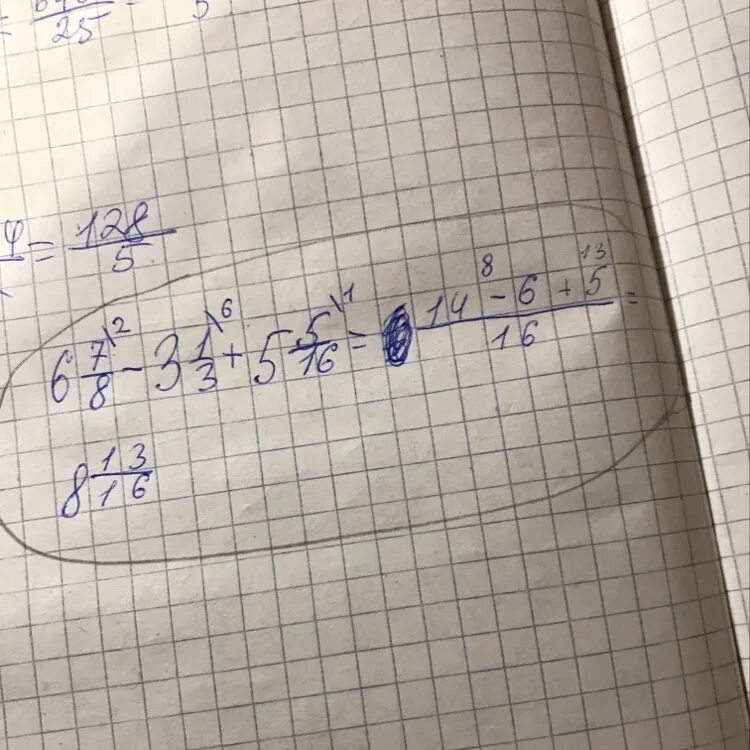 25 5
= 128/5
6 7/8 \2 - 3 1/3 \6 + 5 5/16 \1 = 14 - 6 + 5 / 16 =
8 13
8 13/16